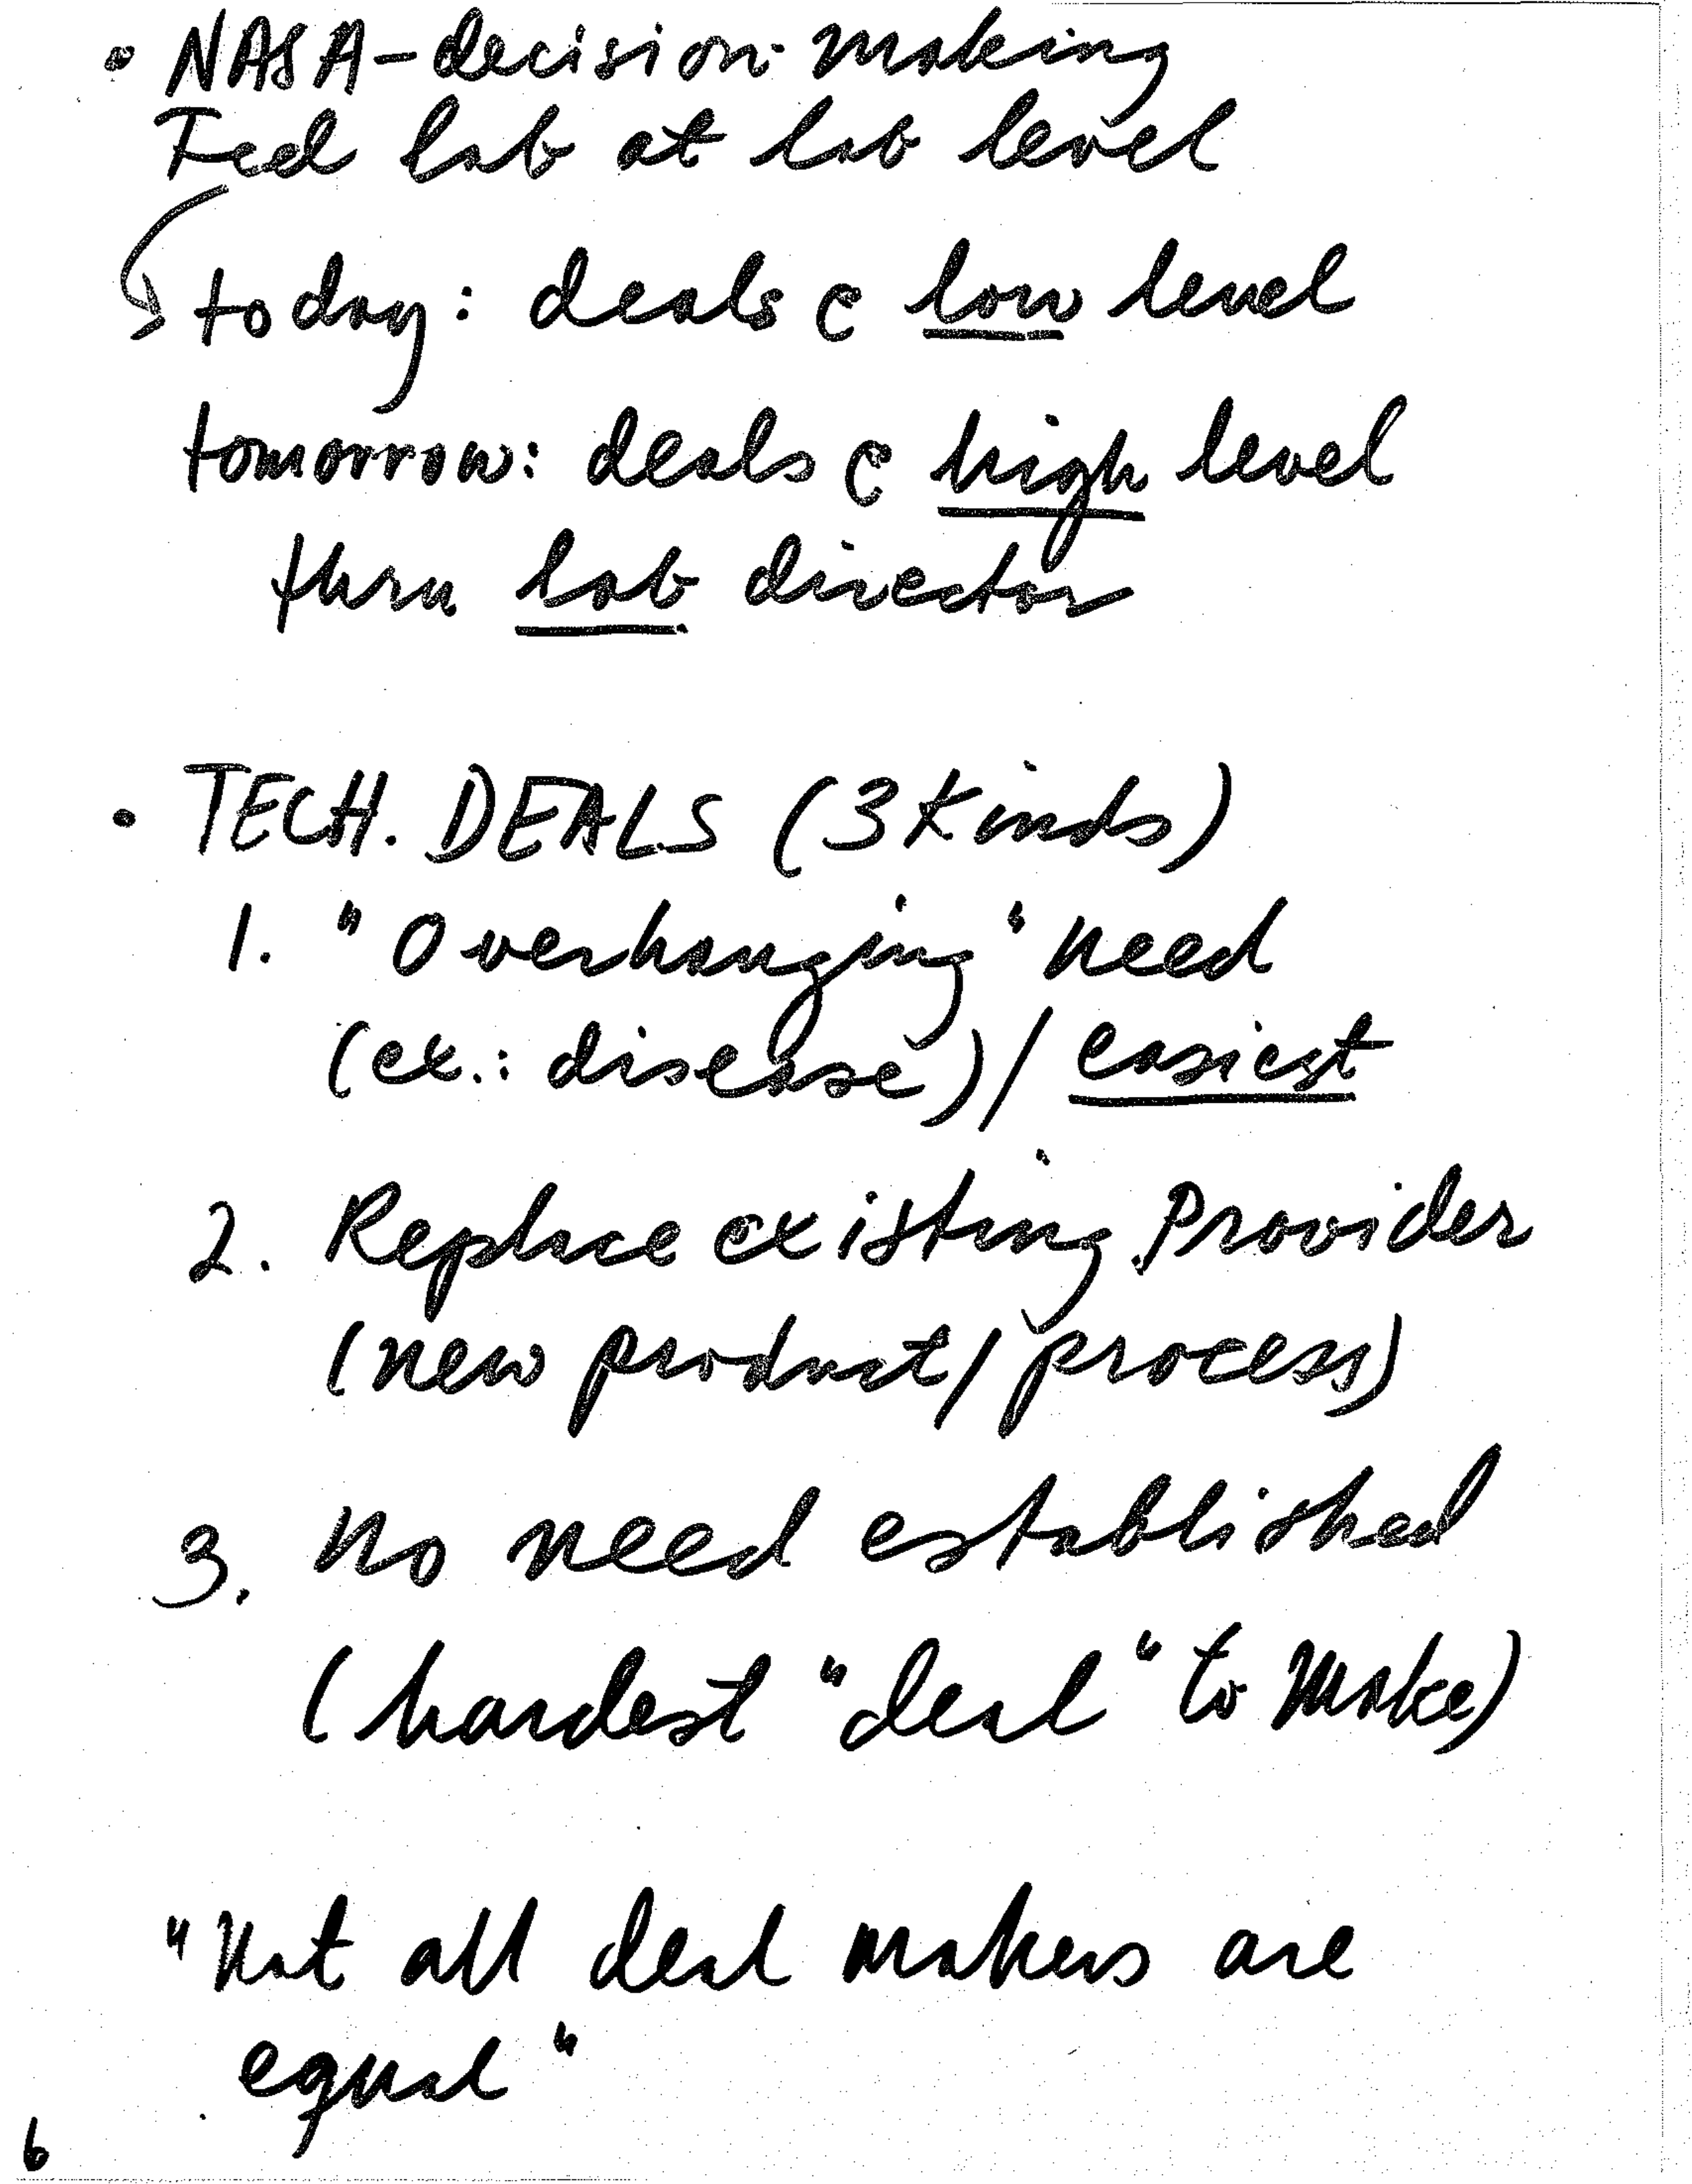 • NASA - decision-making
Fed lab at lab level
today: deals @ low level
tomorrow: deals @ high level
thru lab director
• TECH. DEALS (3 Kinds)
1. "Overhanging" need
(ex.: disease) / easiest
2. Replace existing Provider
(new product / process)
3. No need established
(hardest "deal" to make)
"Not all deal makers are
equal"
6